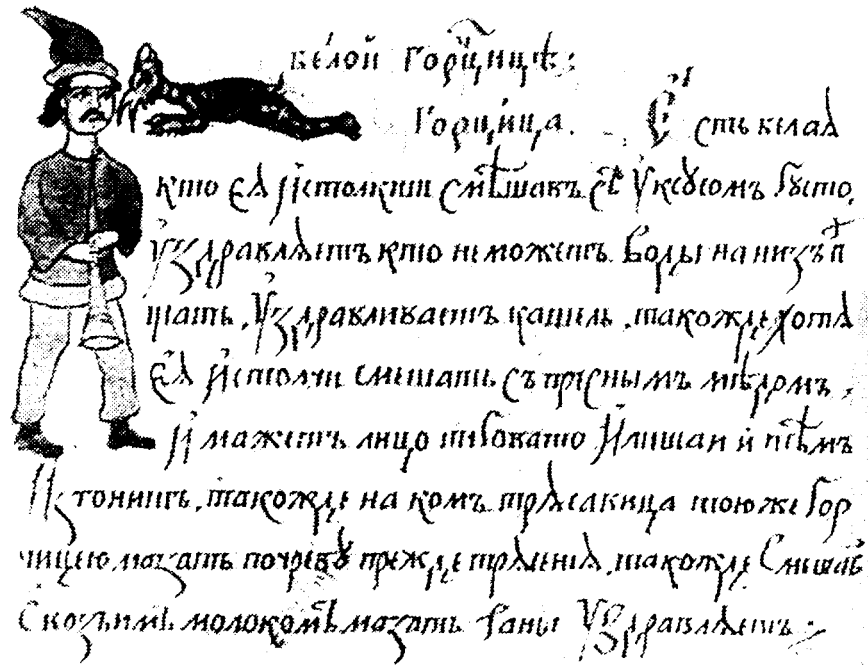 белой горчицѣ:
Горчица. Есть белая
кто ея истолкши смѣшавъ съ уксусомъ густо,
уздравляетъ кто неможетъ воды нанизъ п
щать, уздравливаетъ кашиль, такожде хотя
ея истолчи смешати съ преснымъ мѣдомъ,
и мажетъ лицо илишаи и тѣмъ
такожде на комъ трясавица тоюже гор
чицею мазать почреву прежде трясения, такожде смешав
с козьимъ молокомъ мазать раны уздравляетъ: